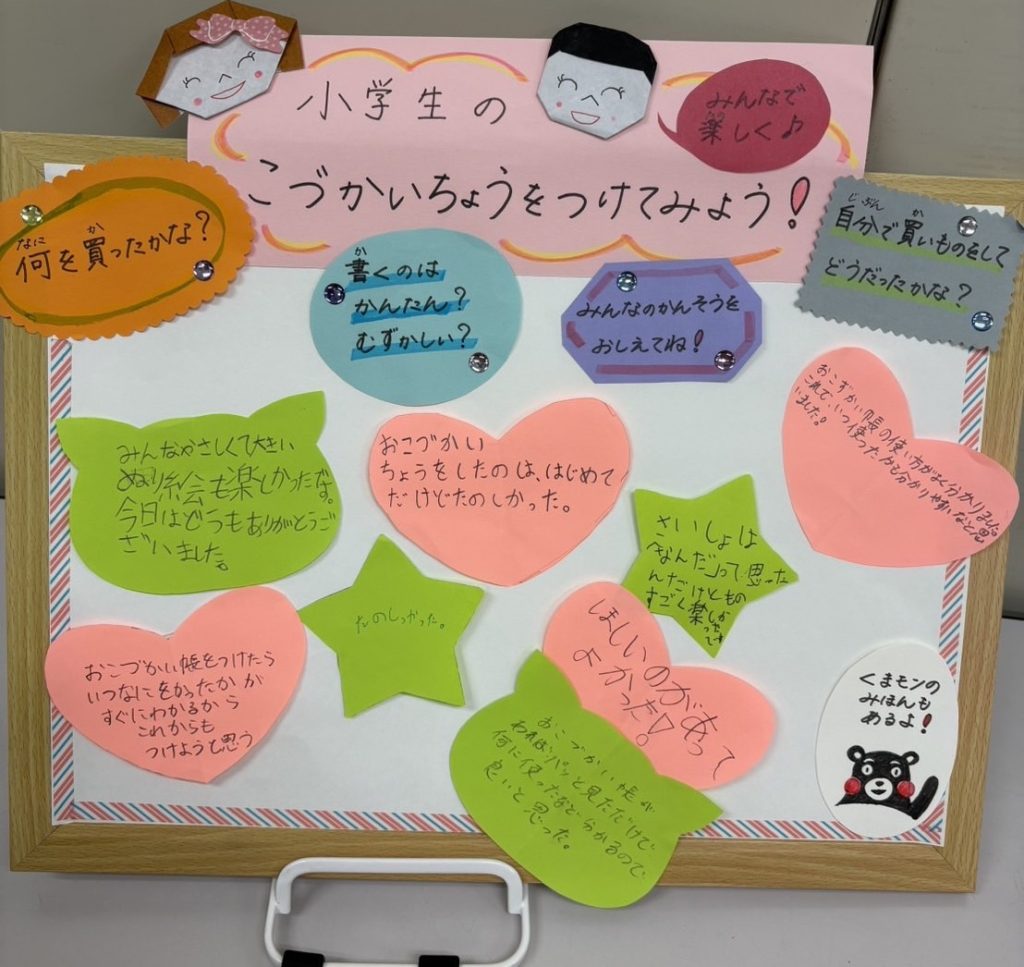 小学生の
こづかいちょうをつけてみよう!
みんなで
楽しく♪
なに か
何を買ったかな?
か
書くのは
かんたん?
むずかしい?
みんなのかんそうを
おしえてね!
じぶん か
自分で買いものをして
どうだったかな?
みんなやさしくて大きい
ぬり絵会も楽しかったです。
今日はどうもありがとうご
ざいました。
おこづかい
ちょうをしたのは、はじめて
だけどたのしかった。
さいしょは
「なんだ」って思った
んだけどもの
すごく楽しか
ったです
おこずかい帳の使い方がよく分かりました。
これで、いつ使ったかも分かりやすいなと思
いました。
おこづかい帳をつけたら
いつなにをかったかが
すぐにわかるから
これからも
つけようと思う
たのしかった。
ほしいのがあって
よかった!
おこづかい帳が
あればパッと見ただけで
何に使ったなど分かるので
良いと思った。
くまモンの
みほんも
あるよ!